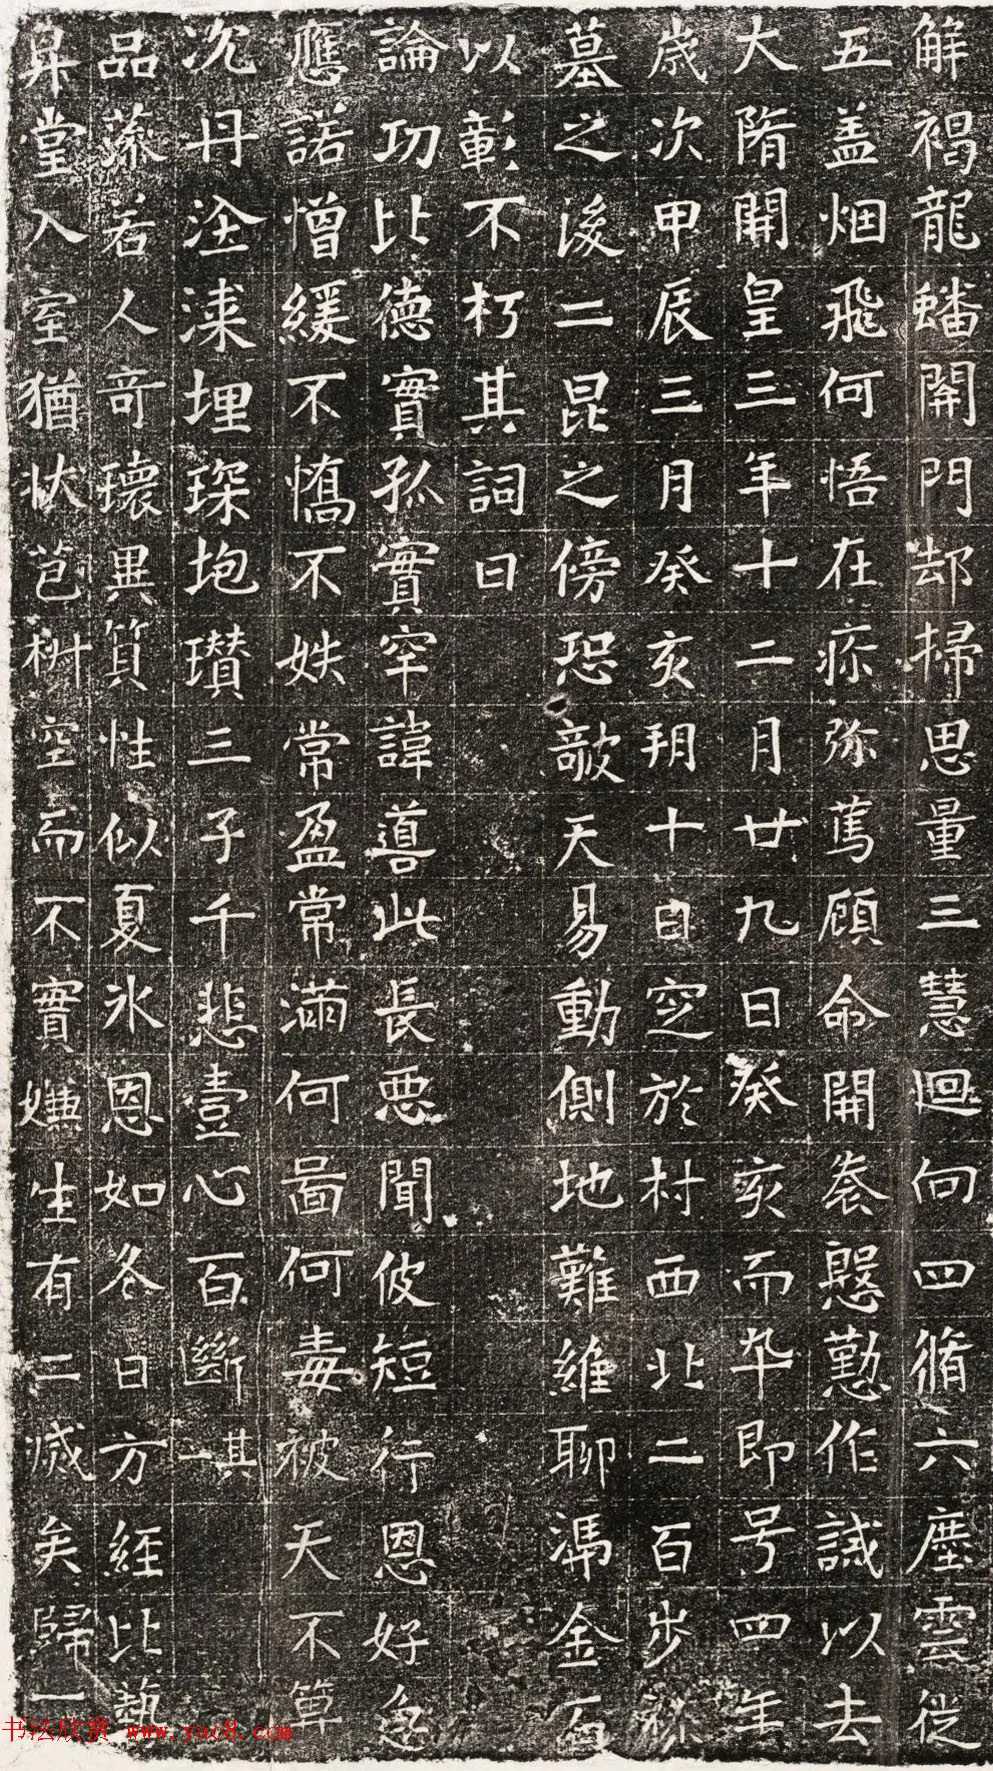 解褐龍蟠開門却掃思量三慧迴向四脩六塵雲從
五盖烟飛何悟在疹弥篤顧命開袠慇懃作誡以去
大隋開皇三年十二月廿九日癸亥而卒即号四年
歲次甲辰三月癸亥朔十日窆於村西北二百步祢
墓之後二昆之傍恐敲天易動側地難維聊馮金石
以彰不朽其詞曰
論功比德實孤實罕諱善此長惡聞彼短行恩好急
應諾憎緩不憍不妷常盈常滿何啚何毒被天不筭
沉丹塗漆埋琛抱瓚三子千悲壹心百斷其一
品藻若人奇瓌異質性似夏氷恩如冬日方經比藝
昇堂入室猶狀苞桝空而不實嫌生有二滅矣歸一
书法欣赏 www.yac8.com